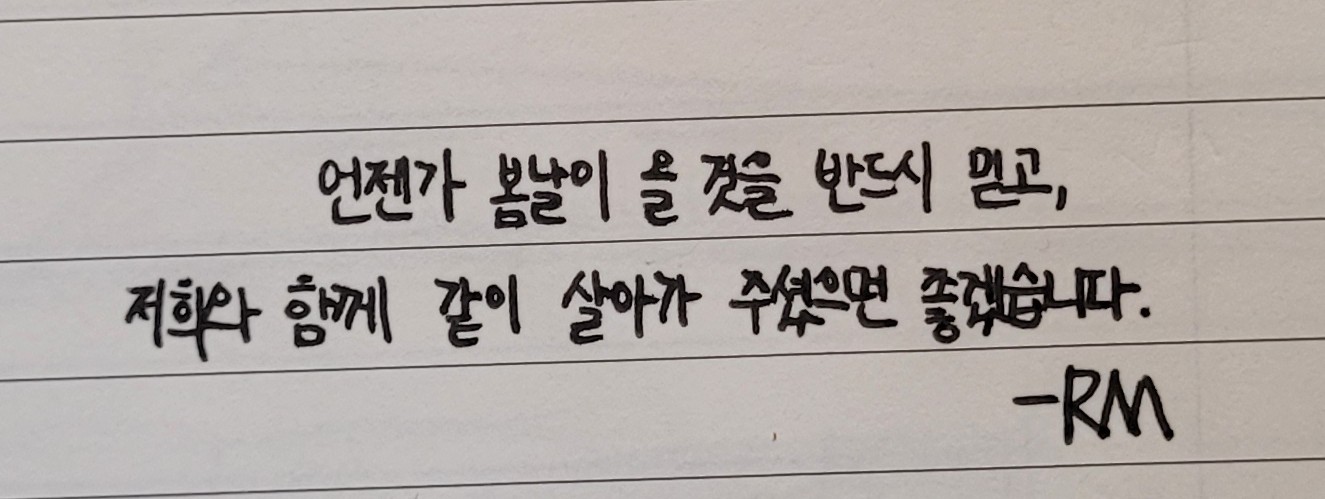 언젠가 봄날이 올 것을 반드시 믿고,
저희와 함께 같이 살아가 주셨으면 좋겠습니다.
-RM